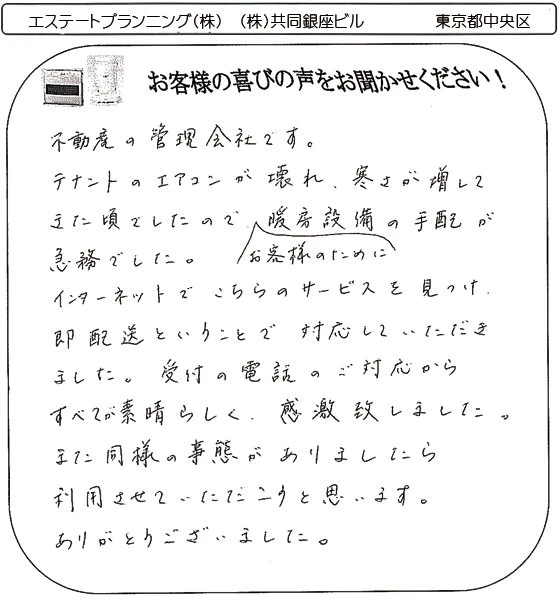 エステートプランニング(株) (株)共同銀座ビル 東京都中央区
お客様の喜びの声をお聞かせください!
不動産の管理会社です。
テナントのエアコンが壊れ、寒さが増して
きた頃でしたので、暖房設備の手配が
急務でした。 お客様のために
インターネットでこちらのサービスを見つけ、
即配送ということで対応していただき
ました。受付の電話のご対応から
すべてが素晴らしく、感激致しました。
また同様の事態がありましたら
利用させていただこうと思います。
ありがとうございました。